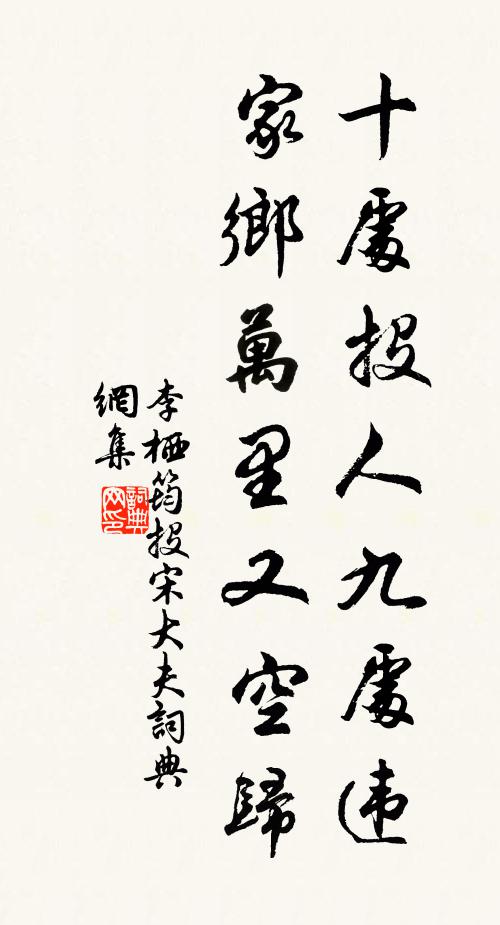 十處投人九處违
家鄉萬里又空歸
李栖筠投宋大夫詞典
網集
詞典
网印